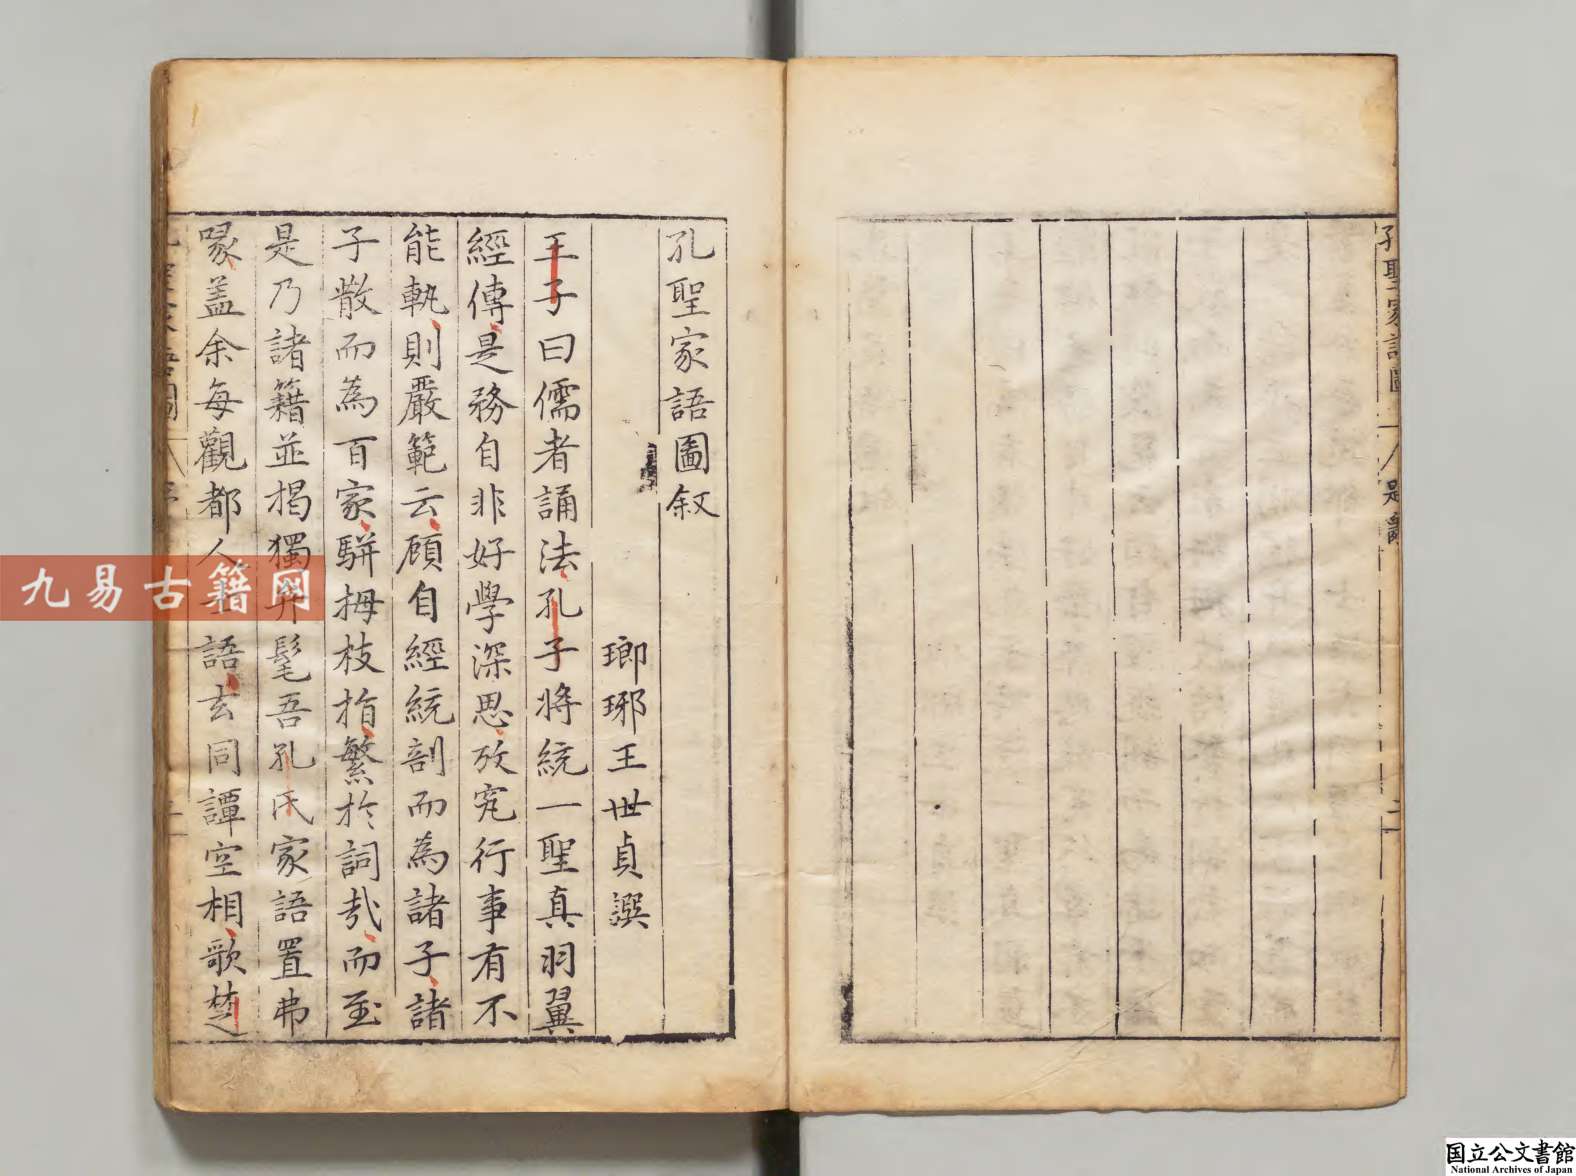 孔聖家語圖
孔聖家語圖敘
瑯琊王世貞譔
王子曰儒者誦法孔子將統一聖真羽翼
經傳是務自非好學深思攷究行事有不
能執則嚴範云顧自經統剖而為諸子諸
子散而為百家騈拇枝指繁於詞哉而至
是乃諸籍並揭獨弁髦吾孔氏家語置弗
喙盖余每觀都人語玄同譚空相歌楚
九易古籍网
国立公文書館
National Archives of Japan